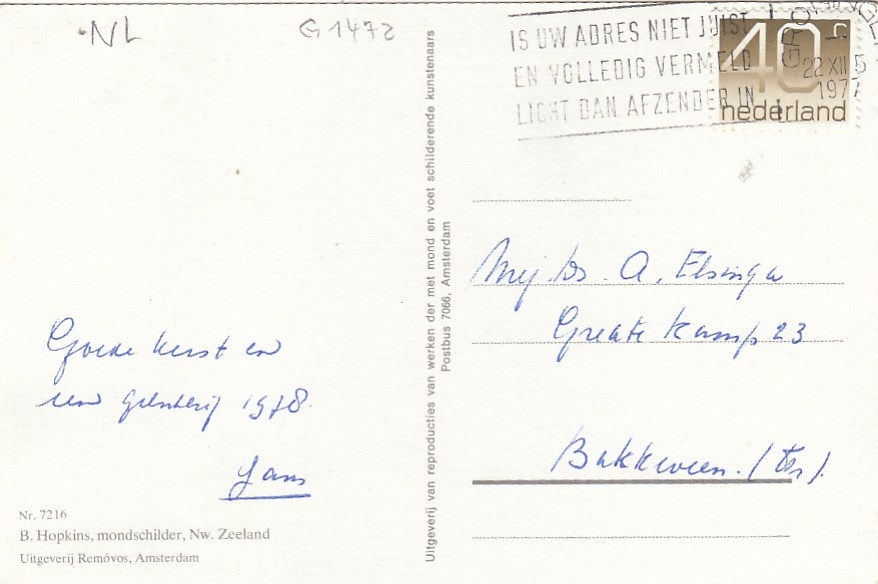 NL
G1472
IS UW ADRES NIET JUIST
EN VOLLEDIG VERMELD
LICHT DAN AFZENDER IN
40 c
nederland
22 XII 5
1977
Uitgeverij van reproducties van werken der met mond en voet schilderende kunstenaars
Postbus 7066, Amsterdam
Mej. Ds. A. Elsinga
Greate Kamp 23
Bakkeveen. (Fr).
Goede kerst en
een gelukkig 1978.
Jans
Nr. 7216
B. Hopkins, mondschilder, Nw. Zeeland
Uitgeverij Removos, Amsterdam